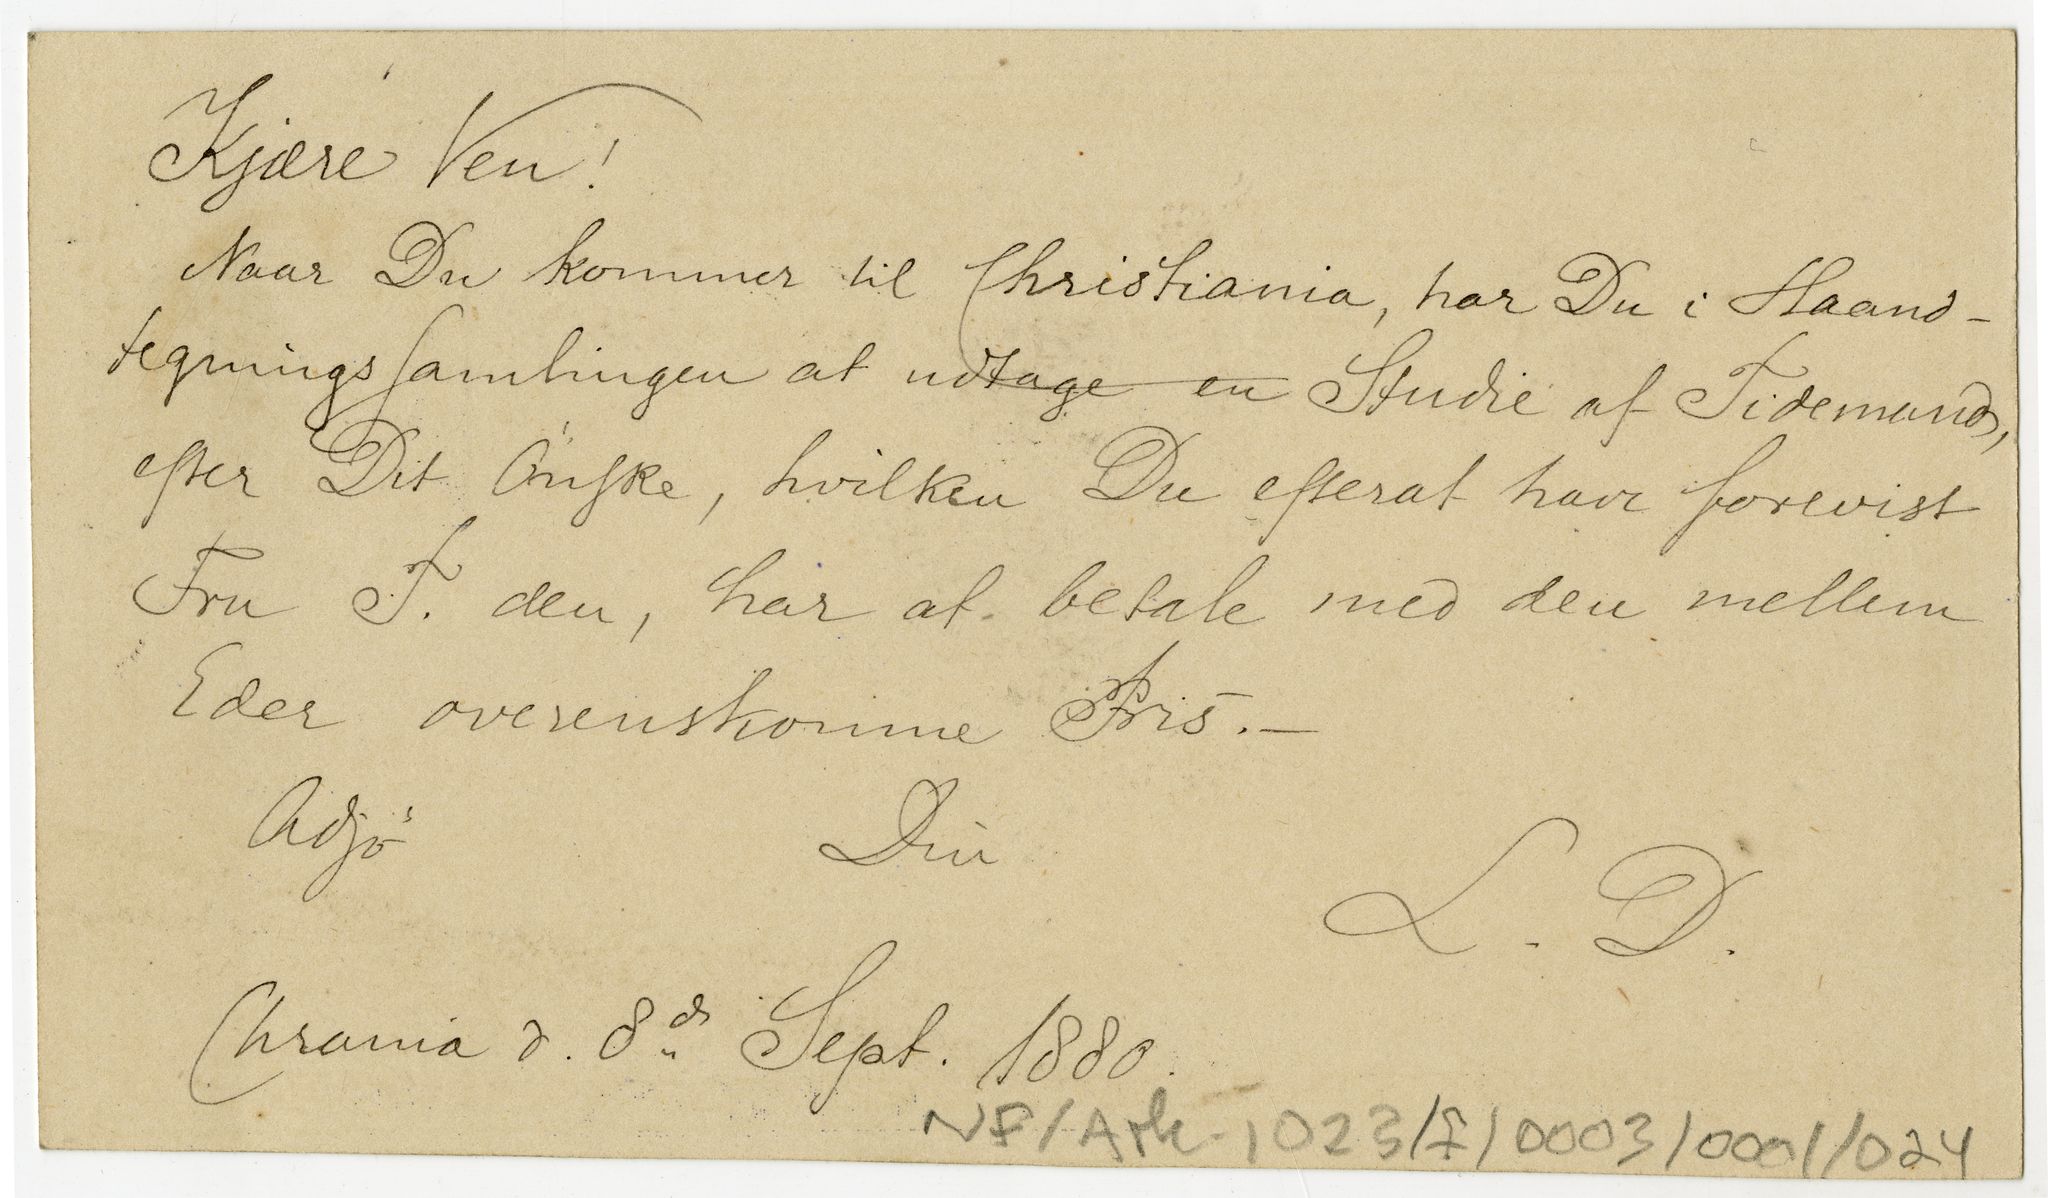 Kjære Ven!
Naar Du kommer til Christiania, har Du i Haand-
tegningssamlingen at udtage en Studie af Tidemand,
efter Dit Önske, hvilken Du efterat have forevist
Fru T. den, har at betale med den mellem
Eder overenskomme Pris. —
Adjö Din
L. D.
Chrania d. 8de Sept. 1880.
NF/Ark-1023/F/0003/0001/024